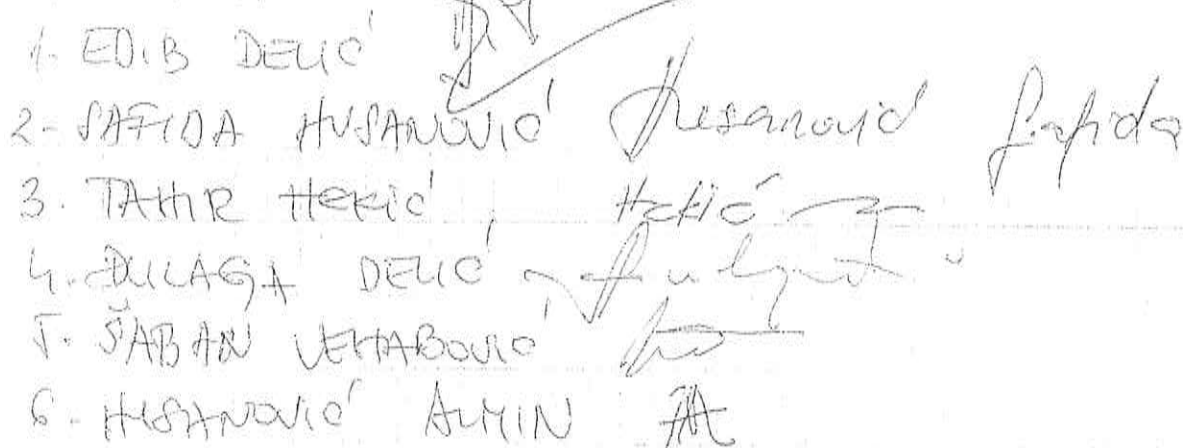 1. EDIB DELIĆ
2- SAFIDA HUSANOVIĆ Husanović Safida
3. TAHIR HEKIĆ Hekić
4. DULAGA DELIĆ
5. ŠABAN VEHABOVIĆ
6. HUSANOVIĆ ALMIN